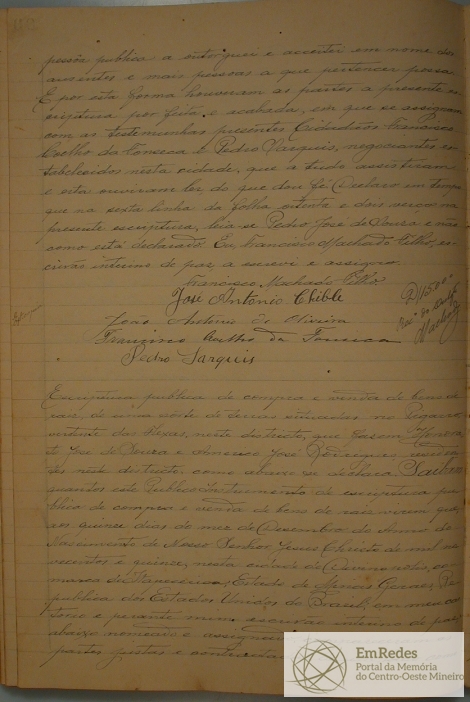 pessôa publica a outorguei e acceitei em nome dos
auzentes e mais pessôas a que pertencer possa.
E por esta forma houveram as partes a presente es-
criptura por feita e acabada, em que se assignam
com as testemunhas presentes Cidadãos Francisco
Coelho da Fonseca e Pedro Jarquis, negociantes es-
tabelecidos nesta cidade, que a tudo assistiram
e esta ouviram ler, do que dou fé. Declaro em tempo
que na sexta linha da folha oitenta e dois verço na
presente escriptura, leia-se Pedro José de Souza e não
como está declarado. Eu, Francisco Machado Filho, es-
crivão interino de paz a escrevi e assigno.
Francisco Machado Filho
José António Chible
João Antonio de Oliveira
Francisco Coelho da Fonseca
Pedro Jarquis
Machado
Escriptura publica de compra e venda de bens de
raiz, de uma sorte de terras situadas no
vertente das, neste districto, que fazem
José de Souza e José Rodrigues,
neste districto, como abaixo se declara. Saibam
quantos este Publico instrumento de escriptura pu-
blica de compra e venda de bens de raiz virem que,
aos quinze dias do mez de Dezembro do Anno do
Nascimento de Nosso Senhor Jesus Christo de mil no-
vecentos e quinze, nesta cidade de Divinopolis, co-
marca de Itapecerica, Estado de Minas Geraes, Re-
publica dos Estados Unidos do Brasil, em meu car-
torio e perante mim escrivão interino de paz,
abaixo nomeado e assignado
partes justas e contractadas
EmRedes
Portal da Memória
do Centro-Oeste Mineiro